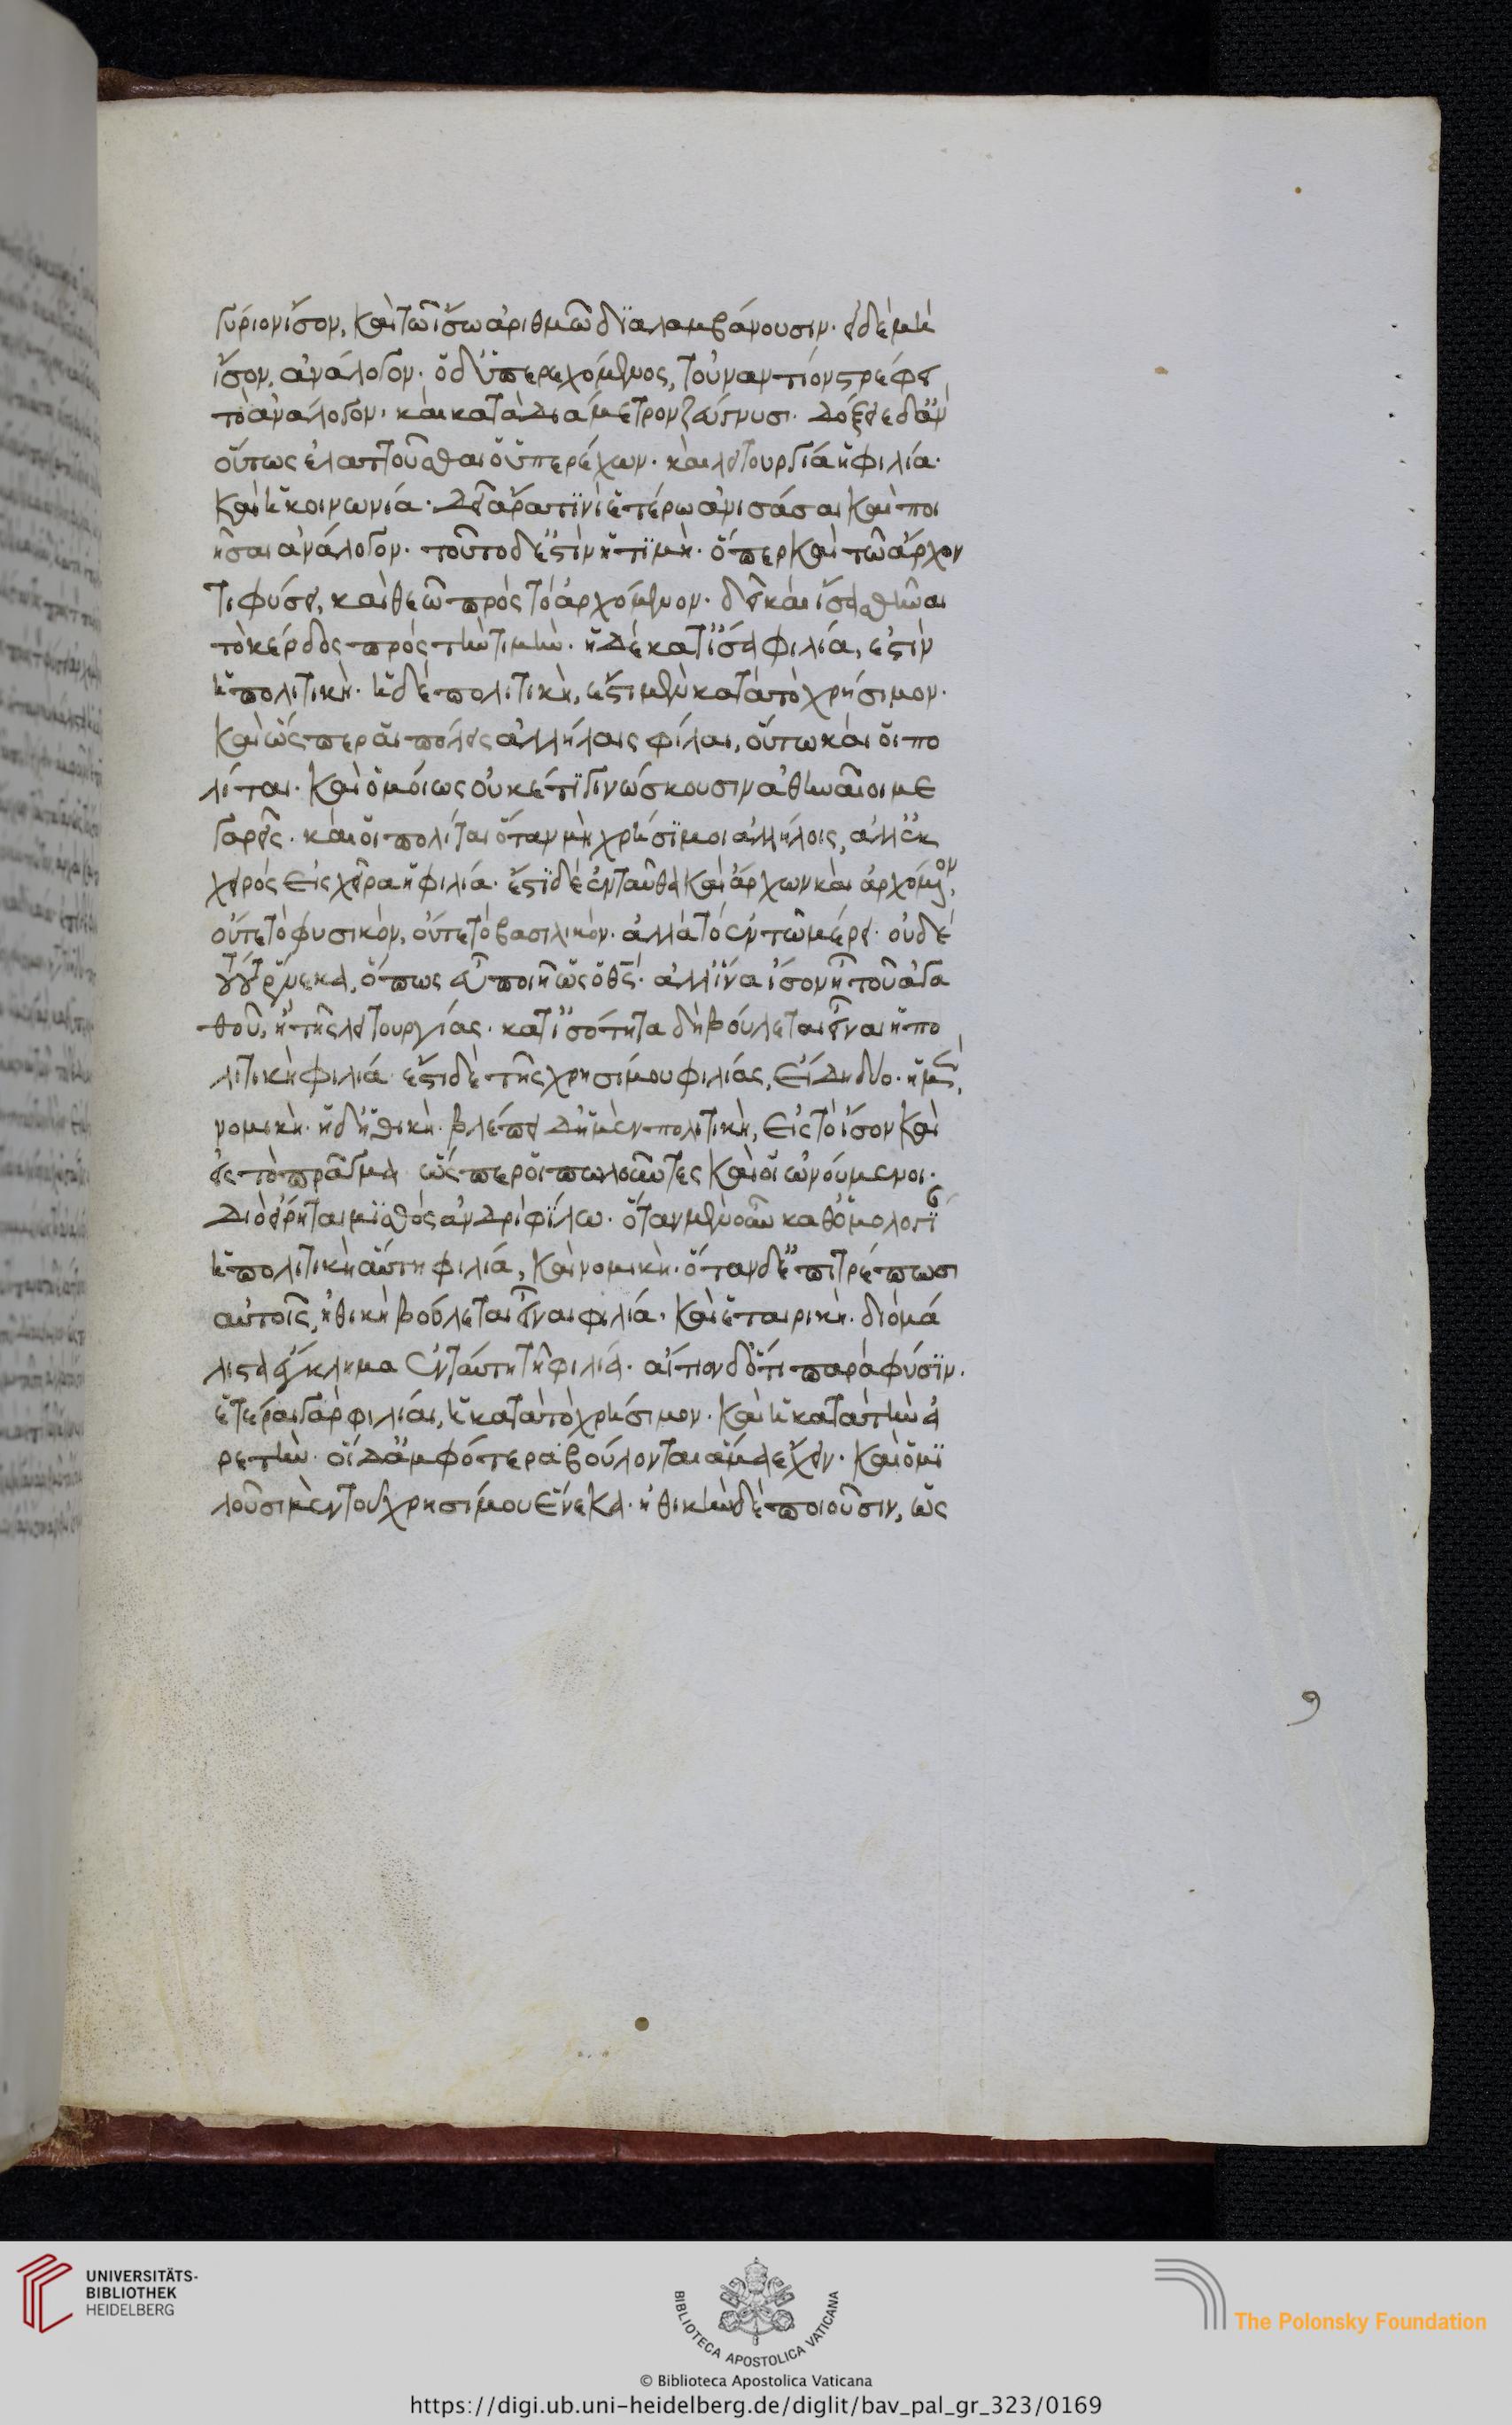 γύριον ἴσον, καὶ τῶ ἴσω ἀριθμῶ διαλαμβάνουσιν. εἰ δὲ μὴ
ἴσον, ἀνάλογον. ὁ δ' ὑπερεχόμενος, τοὐναντίον στρέφει
τὸ ἀνάλογον. καὶ κατὰ διάμετρον ζεύγνυσι. δόξειε δ' ἂν
οὕτως ἐλαττοῦσθαι ὁ ὑπερέχων. καὶ λειτουργία ἡ φιλία.
καὶ ἡ κοινωνία. δεῖ ἄρα τινὶ ἑτέρω ἀνισάσαι καὶ ποι
ῆσαι ἀνάλογον. τοῦτο δ' ἐστὶν ἡ τιμὴ. ὅπερ καὶ τῶ ἄρχον
τι φύσει, καὶ θεῶ πρὸς τὸ ἀρχόμενον. δεῖ καὶ ἰσασθῆναι
τὸ κέρδος πρὸς τὴν τιμὴν. ἡ δὲ κατ' ἴσα φιλία, ἐστὶν
ἡ πολιτικὴ. ἡ δὲ πολιτικὴ, ἔστι μὲν κατὰ τὸ χρήσιμον.
καὶ ὥσπερ αἱ πόλεις ἀλλήλαις φίλαι, οὕτω καὶ οἱ πο
λίται. καὶ ὁμοίως οὐκέτι γινώσκουσιν ἀθηναῖοι με
γαρεῖς. καὶ οἱ πολίται ὅταν μὴ χρήσιμοι ἀλλήλοις, ἀλλ' ἐκ
χειρὸς εἰς χεῖρα ἡ φιλία. ἔστι δὲ ἐνταῦθα καὶ ἄρχων καὶ ἀρχόμενον,
οὔτε τὸ φυσικὸν, οὔτε τὸ βασιλικὸν. ἀλλὰ τὸ ἐν τῶ μέρει. οὐδὲ
τούτου ἕνεκα, ὅπως εὖ ποιῆ ὡς ὁ θεός. ἀλλ' ἵνα ἴσον ἦ τοῦ ἀγα
θοῦ, ἢ τῆς λειτουργίας. κατ' ἰσότητα δὴ βούλεται εἶναι ἡ πο
λιτικὴ φιλία ἔστι δὲ τῆς χρησίμου φιλίας, εἴδη δύο. ἡ μὲν,
νομικὴ. ἡ δ' ἠθικὴ. βλέπει δ' ἡ μὲν πολιτικὴ, εἰς τὸ ἴσον καὶ
εἰς τὸ πρᾶγμα ὥσπερ οἱ πωλοῦντες καὶ οἱ ὠνούμενοι.
διὸ εἴρηται μισθὸς ἀνδρὶ φίλω. ὅταν μὲν οὖν καθ' ὁμολογί
ἡ πολιτικὴ αὕτη φιλία, καὶ νομικὴ. ὅταν δ' ἐπιτρέπωσι
αὐτοῖς, ἠθικὴ βούλεται εἶναι φιλία. καὶ ἑταιρικὴ. διὸ μά
λιστα ἔγκλημα ἐν ταύτη τῆ φιλία. αἴτιον δ' ὅτι παρὰ φύσιν.
ἕτεραι γὰρ φιλίαι, ἡ κατὰ τὸ χρήσιμον. καὶ ἡ κατὰ τὴν ἀ
ρετὴν. οἱ δ' ἀμφότερα βούλονται ἅμα ἔχειν. καὶ ὁμι
λοῦσι μὲν τοῦ χρησίμου ἕνεκα. ἠθικὴν δὲ ποιοῦσιν, ὡς
UNIVERSITÄTS-
BIBLIOTHEK
HEIDELBERG
BIBLIOTECA APOSTOLICA VATICANA
The Polonsky Foundation
© Biblioteca Apostolica Vaticana
https://digi.ub.uni-heidelberg.de/diglit/bav_pal_gr_323/0169